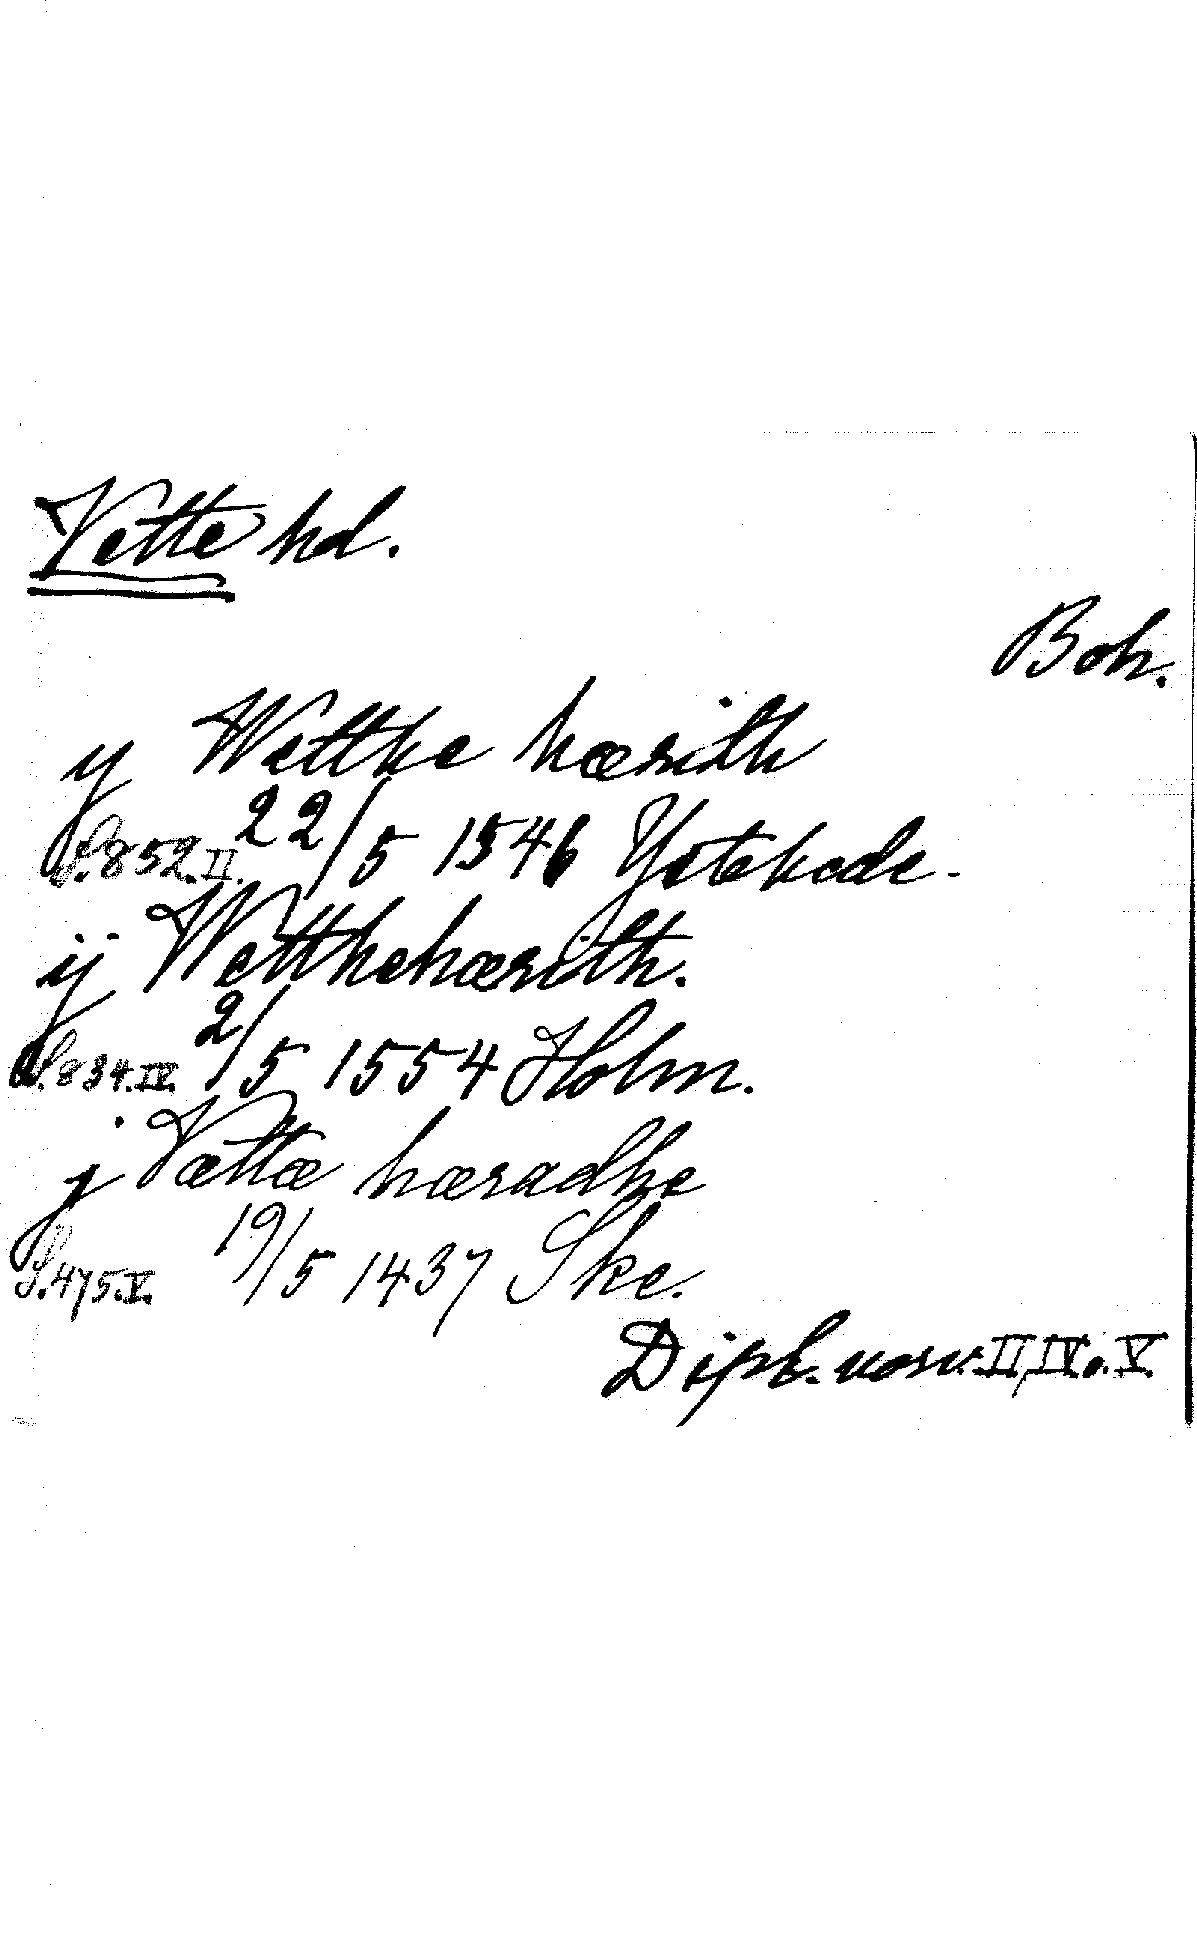 Vette hd.
Boh.
y Wettke hærith
S. 852. II. 22/5 1546 Ystekade.
ij Wettkehærith.
S. 834. IV. 2/5 1554 Holm.
j Vætta hæradhe
S. 475. V. 19/5 1437 Ske.
Dipl. norv. II, IV o. V.